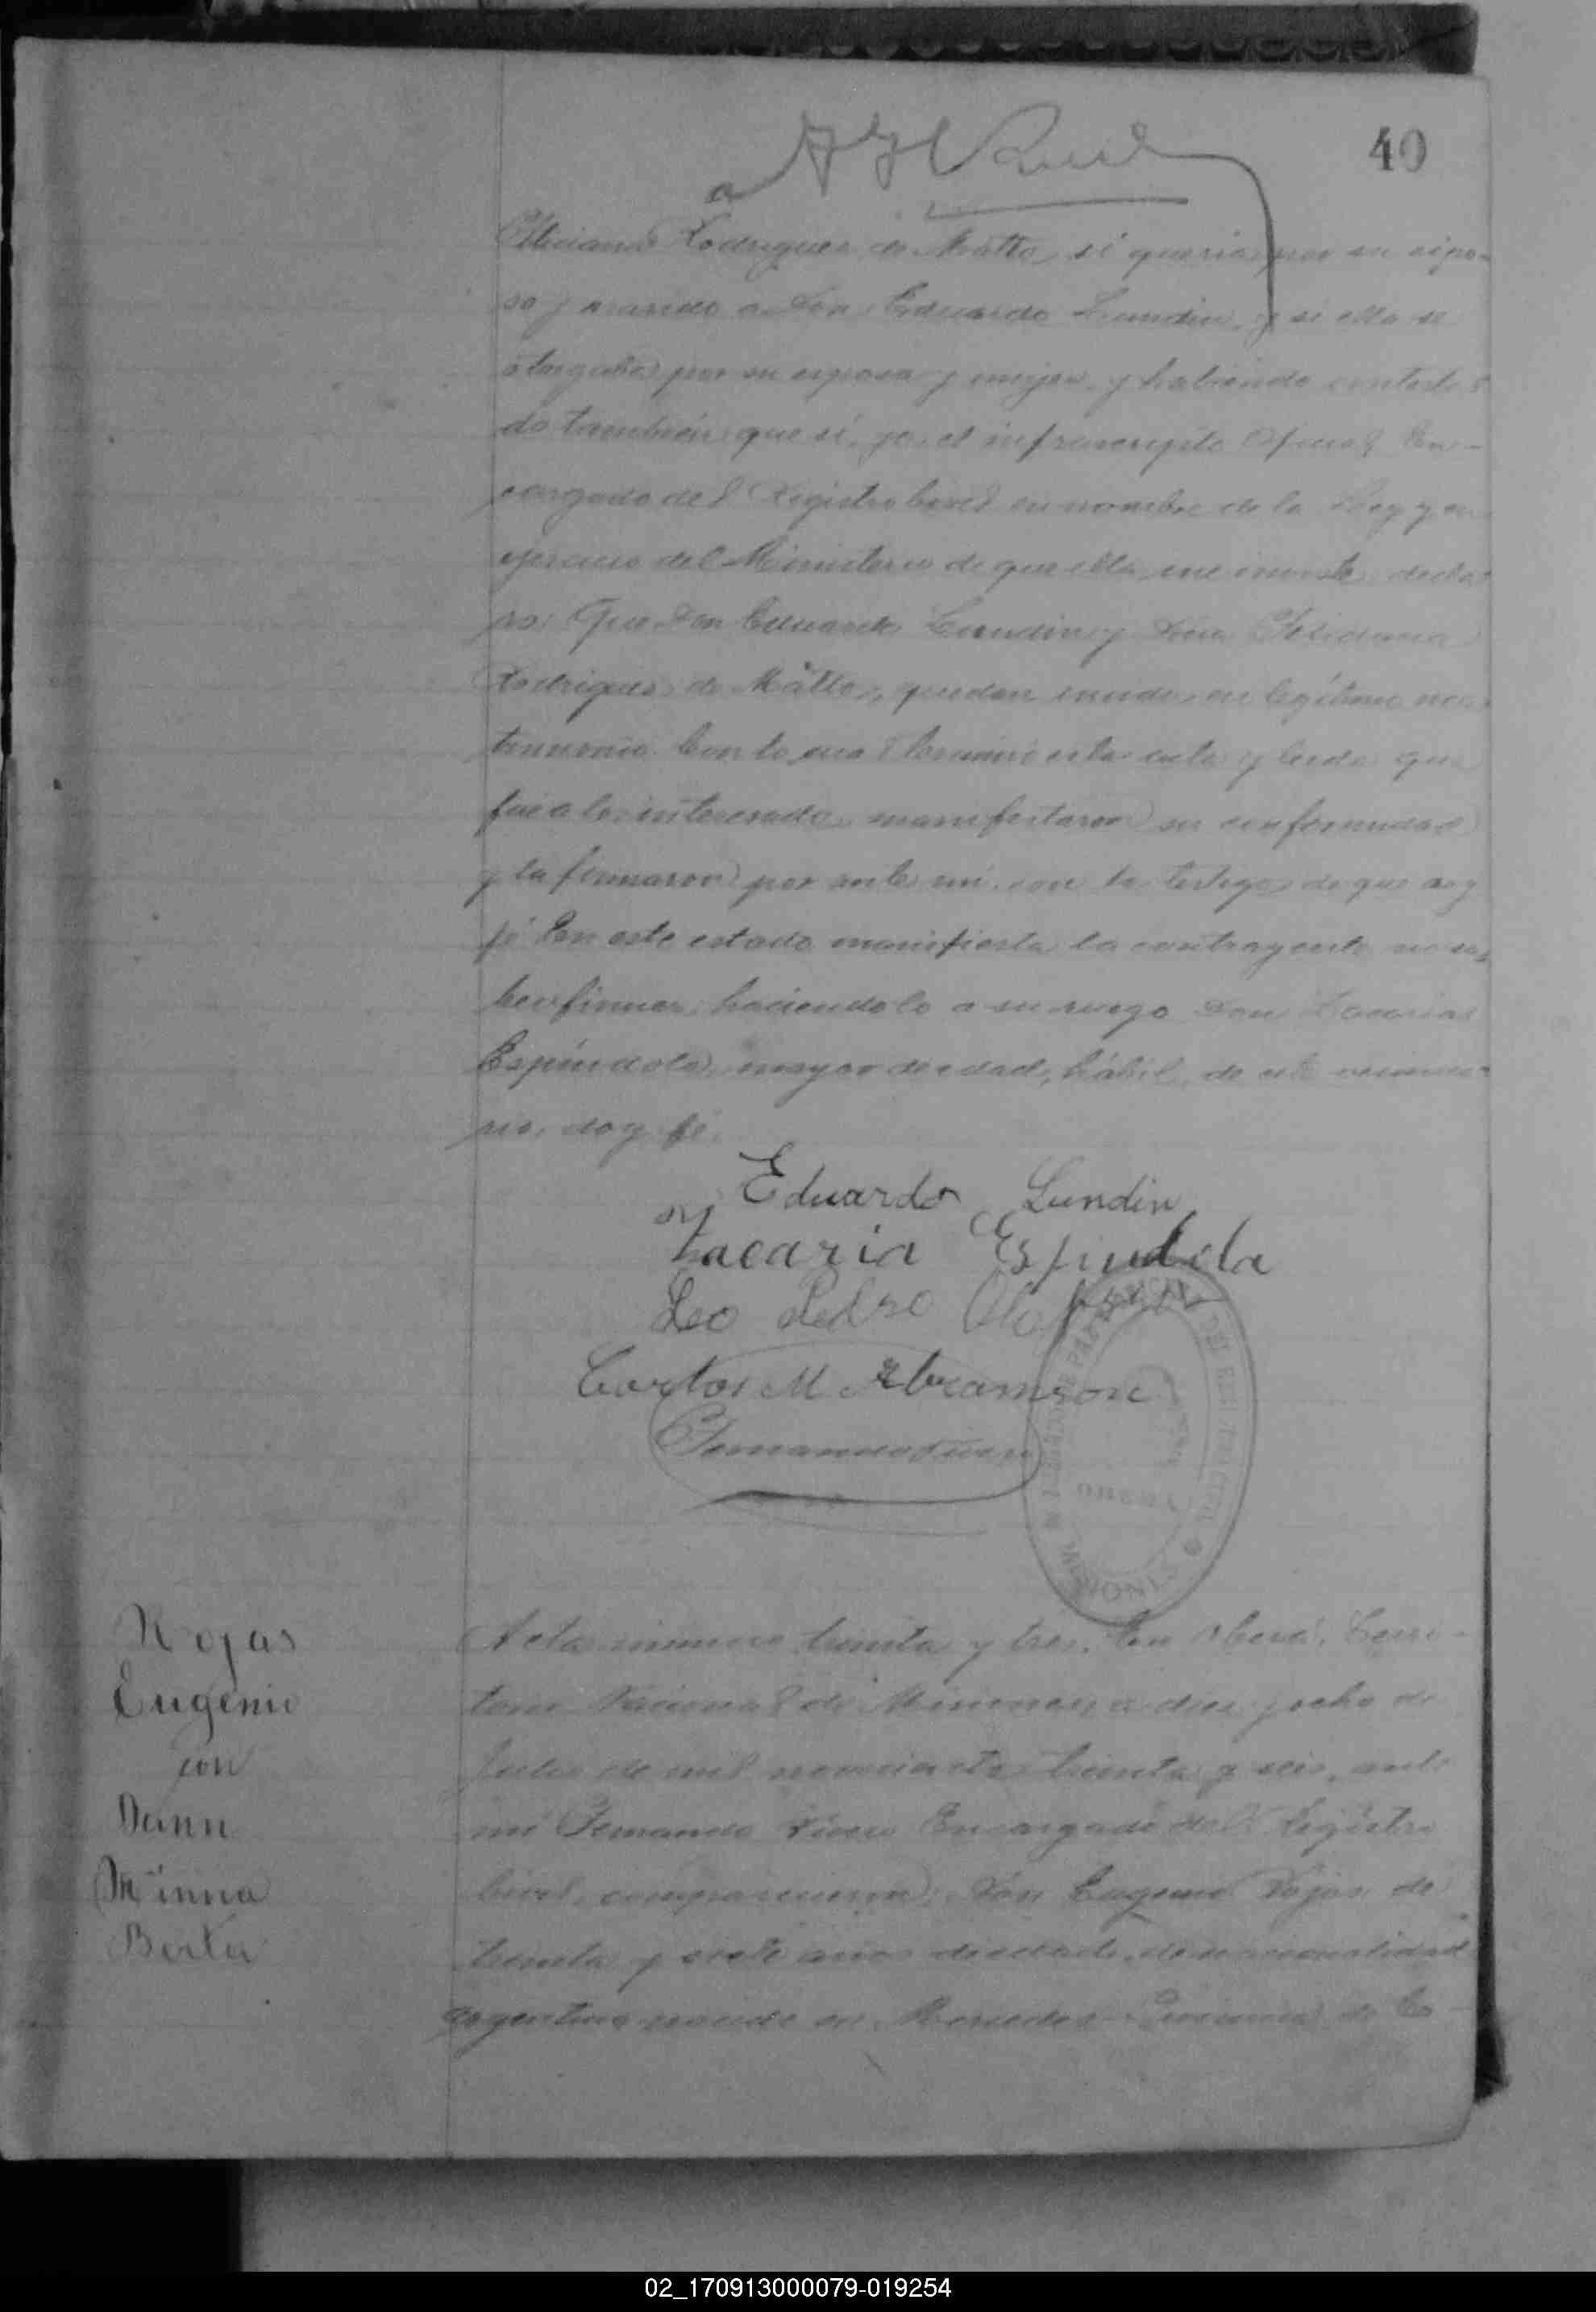 40
Rodrigues de Matto, si queria por su espo-
so y marido a Don Eduardo Lundin, y si ella se
otorgaba por su esposa y mujer, y habiendo contesta
do también que sí, yo, el infrascripto Oficial En-
cargado del Registro Civil en nombre de la Ley y en
ejercicio del Ministerio de que ella me inviste decla
ro: Que Don Eduardo Lundin y Doña Feliciana
Rodrigues de Matto, quedan unidos en legítimo ma
trimonio. Con lo cual terminó esta acta y leida que
fué a los interesados manifestaron su conformidad
y la firmaron por ante mí, con los testigos de que doy
fé En este estado manifiesta la contrayente no sa
ber firmar, haciendolo a su ruego Don Zacarias
Espíndola, mayor de edad, hábil, de este vecinda-
rio, doy fé.
Eduardo Lundin
Zacaria Espindola
Leo Pedro
Carlos M Abramson
Rojas
Eugenio
con
Dann
Minna
Berta
Acta número treinta y tres. En Oberá, Terri-
torio Nacional de Misiones, a diez y ocho de
Julio de mil novecientos treinta y seis, ante
mí Fernando Encargado del Registro
Civil, comparecieron: Don Eugenio Rojas de
treinta y siete años de edad, de nacionalidad
argentino nacido en Mercedes Provincia de Co-
02_170913000079-019254